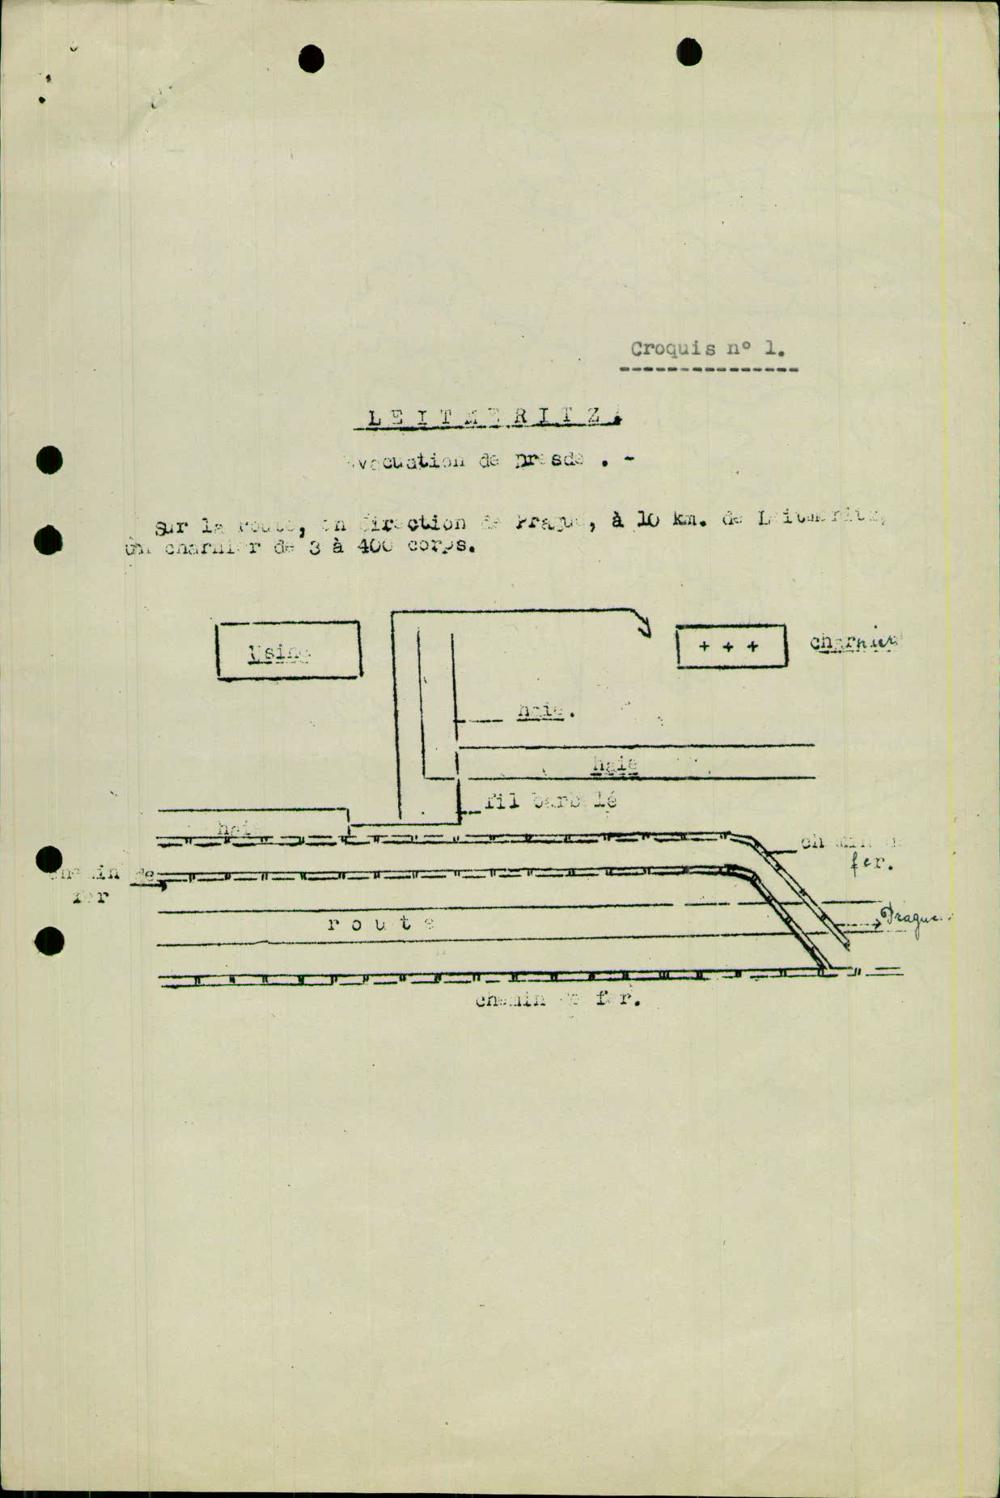 Croquis n° 1.
LEITMERITZ.
Evacuation de Dresde . -
Sur la route, en direction de Prague, à 10 km. de Leitmeritz,
un charnier de 3 à 400 corps.
Usine
+ + +
charnier
haie.
haie
fil barbelé
haie
chemin de
fer.
chemin de
fer
route
Prague
chemin de fer.